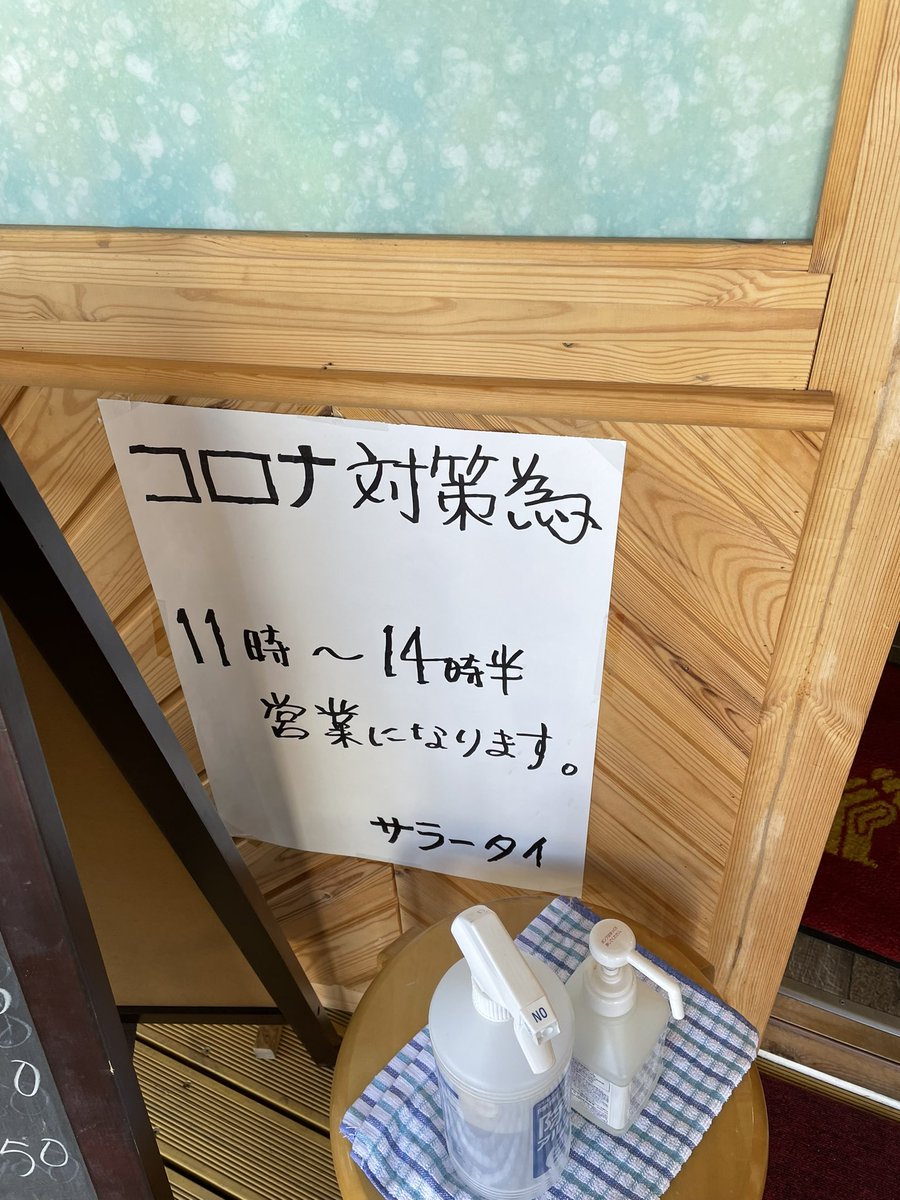 コロナ対策為
11時～14時半
営業になります。
サラータイ
NO
0
50